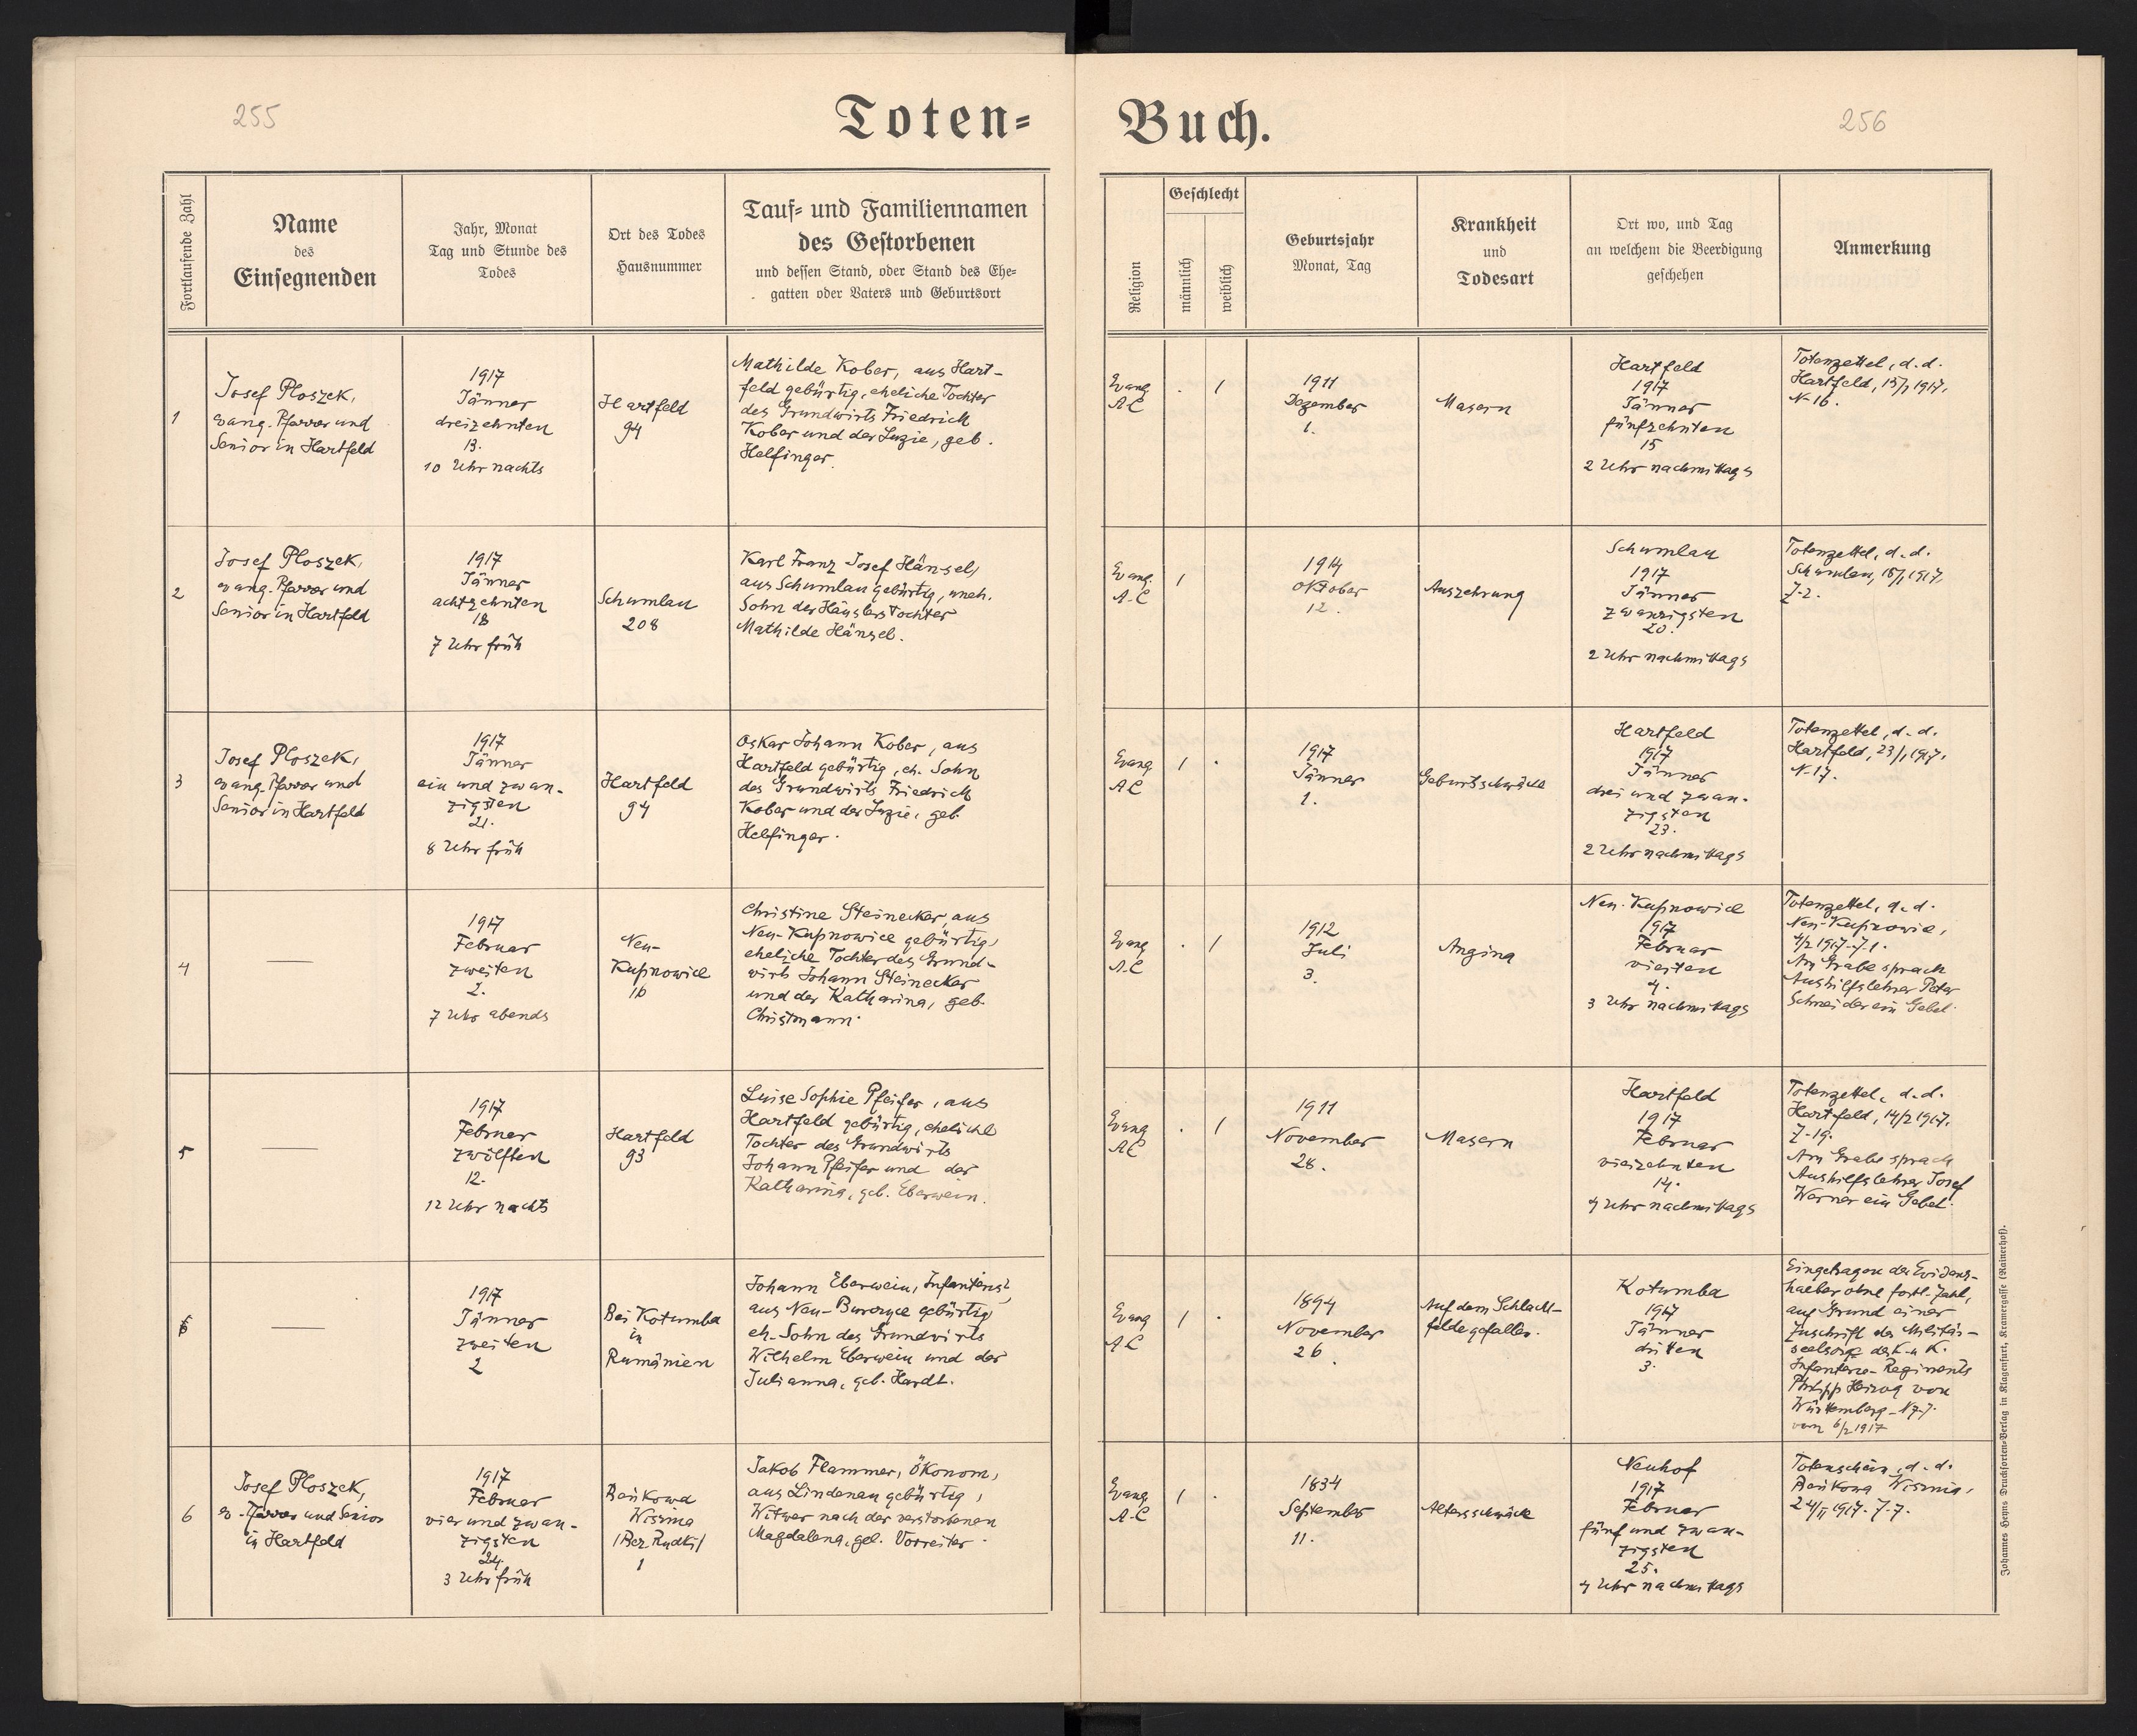 255
Toten=
Buch.
256
Fortlaufende Zahl
Name
des
Einsegnenden
Jahr, Monat
Tag und Stunde des
Todes
Ort des Todes
Hausnummer
Tauf= und Familiennamen
des Gestorbenen
und dessen Stand, oder Stand des Ehe=
gatten oder Vaters und Geburtsort
Religion
Geschlecht
männlich
weiblich
Geburtsjahr
Monat, Tag
Krankheit
und
Todesart
Ort wo, und Tag
an welchem die Beerdigung
geschehen
Anmerkung
1
Josef Ploszek,
evang. Pfarrer und
Senior in Hartfeld
1917
Jänner
dreizehnten
13.
10 Uhr nachts
Hartfeld
94
Mathilde Kober, aus Hart-
feld gebürtig, eheliche Tochter
des Grundwirts Friedrich
Kober und der Luzie, geb.
Helfinger.
Evang
A.C
. 1
1911
Dezember
1.
Masern
Hartfeld
1917
Jänner
fünfzehnten
15
2 Uhr nachmittags
Totenzettel, d. d.
Hartfeld, 15/1 1917,
N. 16.
2
Josef Ploszek,
evang. Pfarrer und
Senior in Hartfeld
1917
Jänner
achtzehnten
18
7 Uhr früh
Schumlau
208
Karl Franz Josef Hänsel,
aus Schumlau gebürtig, uneh.
Sohn der Häuslerstochter
Mathilde Hänsel.
Evang.
A.C
1
1914
Oktober
12.
Auszehrung
Schumlau
1917
Jänner
zwanzigsten
20.
2 Uhr nachmittags
Totenzettel, d. d.
Schumlau, 18/1 1917,
Z. 2.
3
Josef Ploszek,
evang. Pfarrer und
Senior in Hartfeld
1917
Jänner
ein und zwan-
zigsten
21.
8 Uhr früh
Hartfeld
94
Oskar Johann Kober, aus
Hartfeld gebürtig, eh. Sohn
des Grundwirts Friedrich
Kober und der Luzie, geb.
Helfinger.
Evang
A.C
1 .
1917
Jänner
1.
Geburtsschwäche
Hartfeld
1917
Jänner
drei und zwan-
zigsten
23.
2 Uhr nachmittags
Totenzettel, d. d.
Hartfeld, 23/1 1917,
N. 17.
4
—
1917
Februar
zweiten
2.
7 Uhr abends
Neu-
Kupnowice
16
Christine Steinecker, aus
Neu-Kupnowice gebürtig,
eheliche Tochter des Grund-
wirts Johann Steinecker
und der Katharina, geb.
Christmann.
Evang
A.C
. 1
1912
Juli
3.
Angina
Neu-Kupnowice
1917
Februar
vierten
4.
3 Uhr nachmittags
Totenzettel, d. d.
Neu-Kupnowice,
4/2 1917. Z. 1.
Am Grabe sprach
Aushilfslehrer Peter
Schneider ein Gebet.
5
—
1917
Februar
zwölften
12.
12 Uhr nachts
Hartfeld
93
Luise Sophie Pfeifer, aus
Hartfeld gebürtig, eheliche
Tochter des Grundwirts
Johann Pfeifer und der
Katharina, geb. Eberwein.
Evang
A.C
. 1
1911
November
28.
Masern
Hartfeld
1917
Februar
vierzehnten
14.
4 Uhr nachmittags
Totenzettel, d. d.
Hartfeld, 14/2 1917,
Z. 19.
Am Grabe sprach
Aushilfslehrer Josef
Werner ein Gebet.
—
1917
Jänner
zweiten
2
Bei Kotumba
in
Rumänien
Johann Eberwein, Infanterist,
aus Neu-Burczyce gebürtig,
eh. Sohn des Grundwirts
Wilhelm Eberwein und der
Julianna, geb. Hardt.
Evang
A.C
1 .
1894
November
26.
Auf dem Schlacht-
felde gefallen.
Kotumba
1917
Jänner
dritten
3.
Eingetragen der Evidenz-
halber ohne fortl. Zahl,
auf Grund einer
Zuschrift der Militär-
seelsorge des k. u. k.
Infanterie-Regiments
Philipp Herzog von
Württemberg N 77.
vom 6/2 1917
6
Josef Ploszek,
ev. Pfarrer und Senior
in Hartfeld
1917
Februar
vier und zwan-
zigsten
24.
3 Uhr früh
Beńkowa
Wisznia
/Bez. Rudki/
1
Jakob Flammer, Ökonom,
aus Lindenau gebürtig,
Witwer nach der verstorbenen
Magdalena, geb. Vorreiter.
Evang
A.C
1 .
1834
September
11.
Altersschwäche
Neuhof
1917
Februar
fünf und zwan-
zigsten
25.
4 Uhr nachmittags
Totenschein, d. d.
Beńkowa Wisznia,
24/II 1917. Z. 7.
Johannes Heyns Drucksorten-Verlag in Klagenfurt, Kramergasse (Rainerhof).